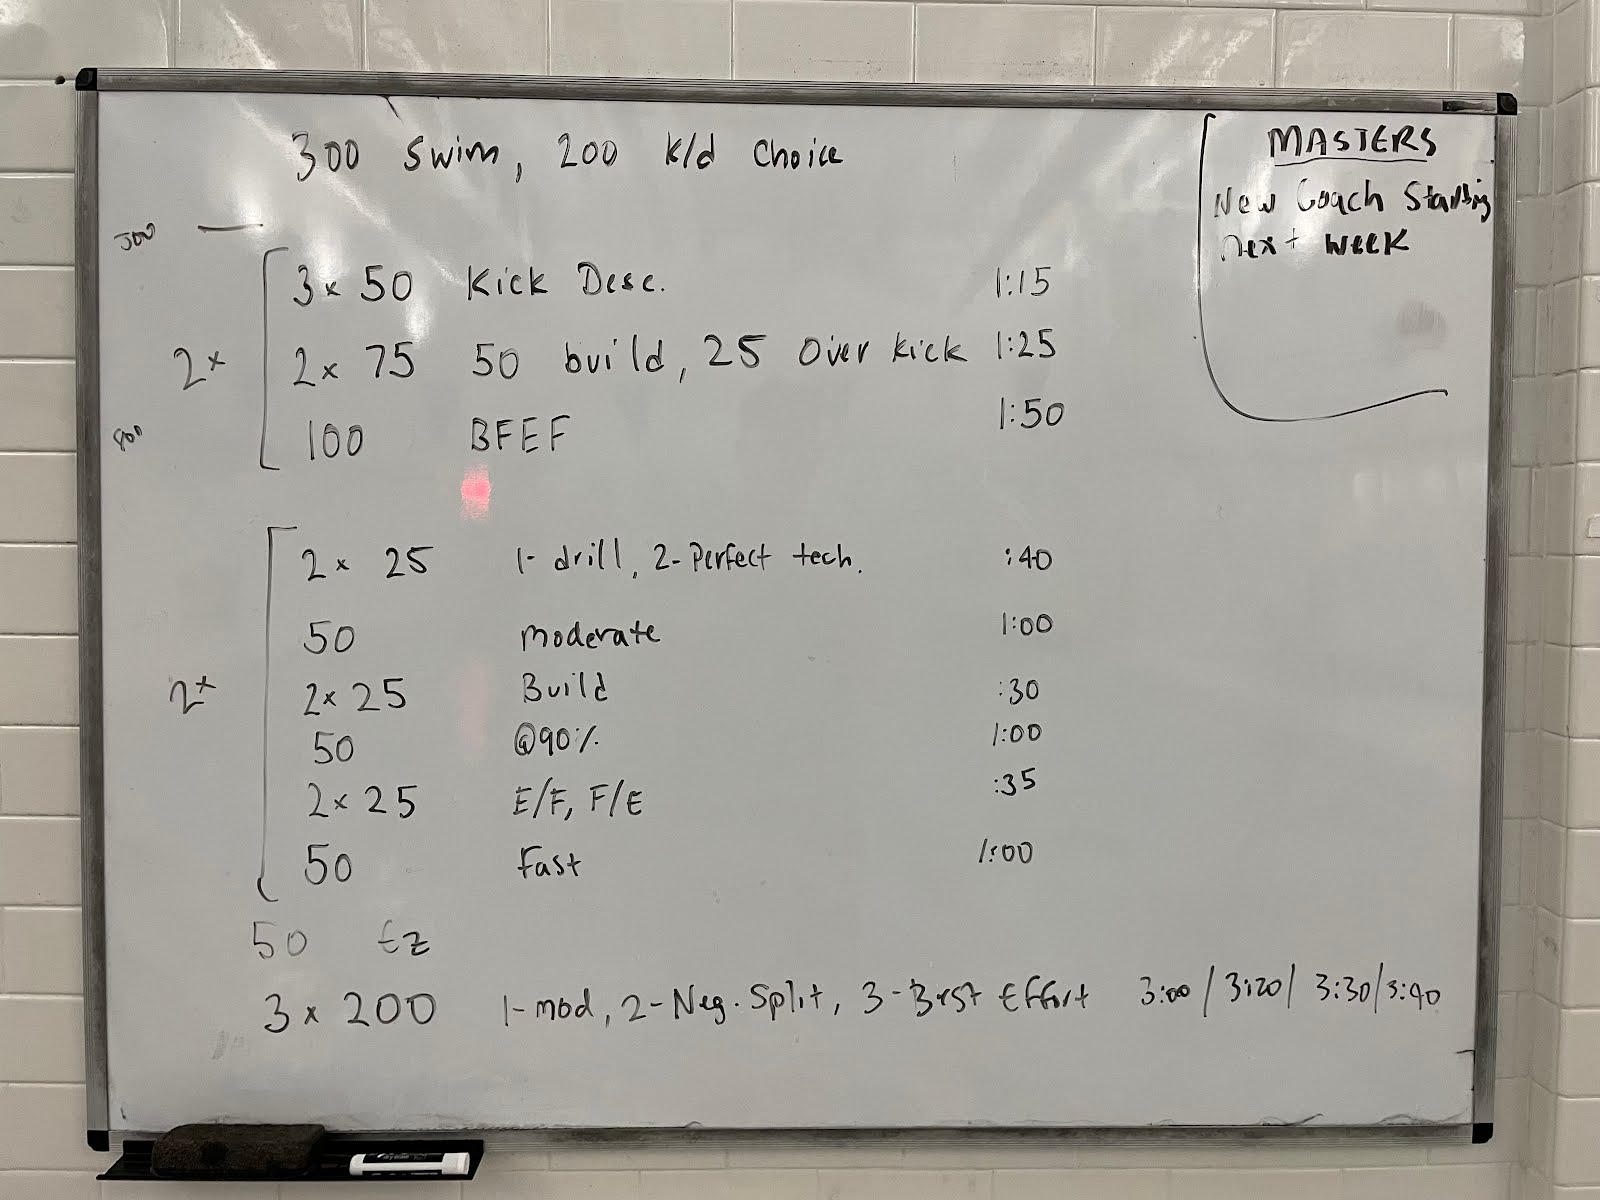 300 Swim, 200 k/d Choice
500
3x 50 Kick Desc. 1:15
2x
2x 75 50 build, 25 Over kick 1:25
100 BFEF 1:50
800
2x 25 1- drill, 2- Perfect tech. :40
50 Moderate 1:00
2x
2x 25 Build :30
50 @90% 1:00
2x 25 E/F, F/E :35
50 Fast 1:00
50 Ez
3x 200 1-mod, 2-Neg. Split, 3-Best Effort 3:00/3:20/3:30/3:40
MASTERS
New Coach Starting
next week